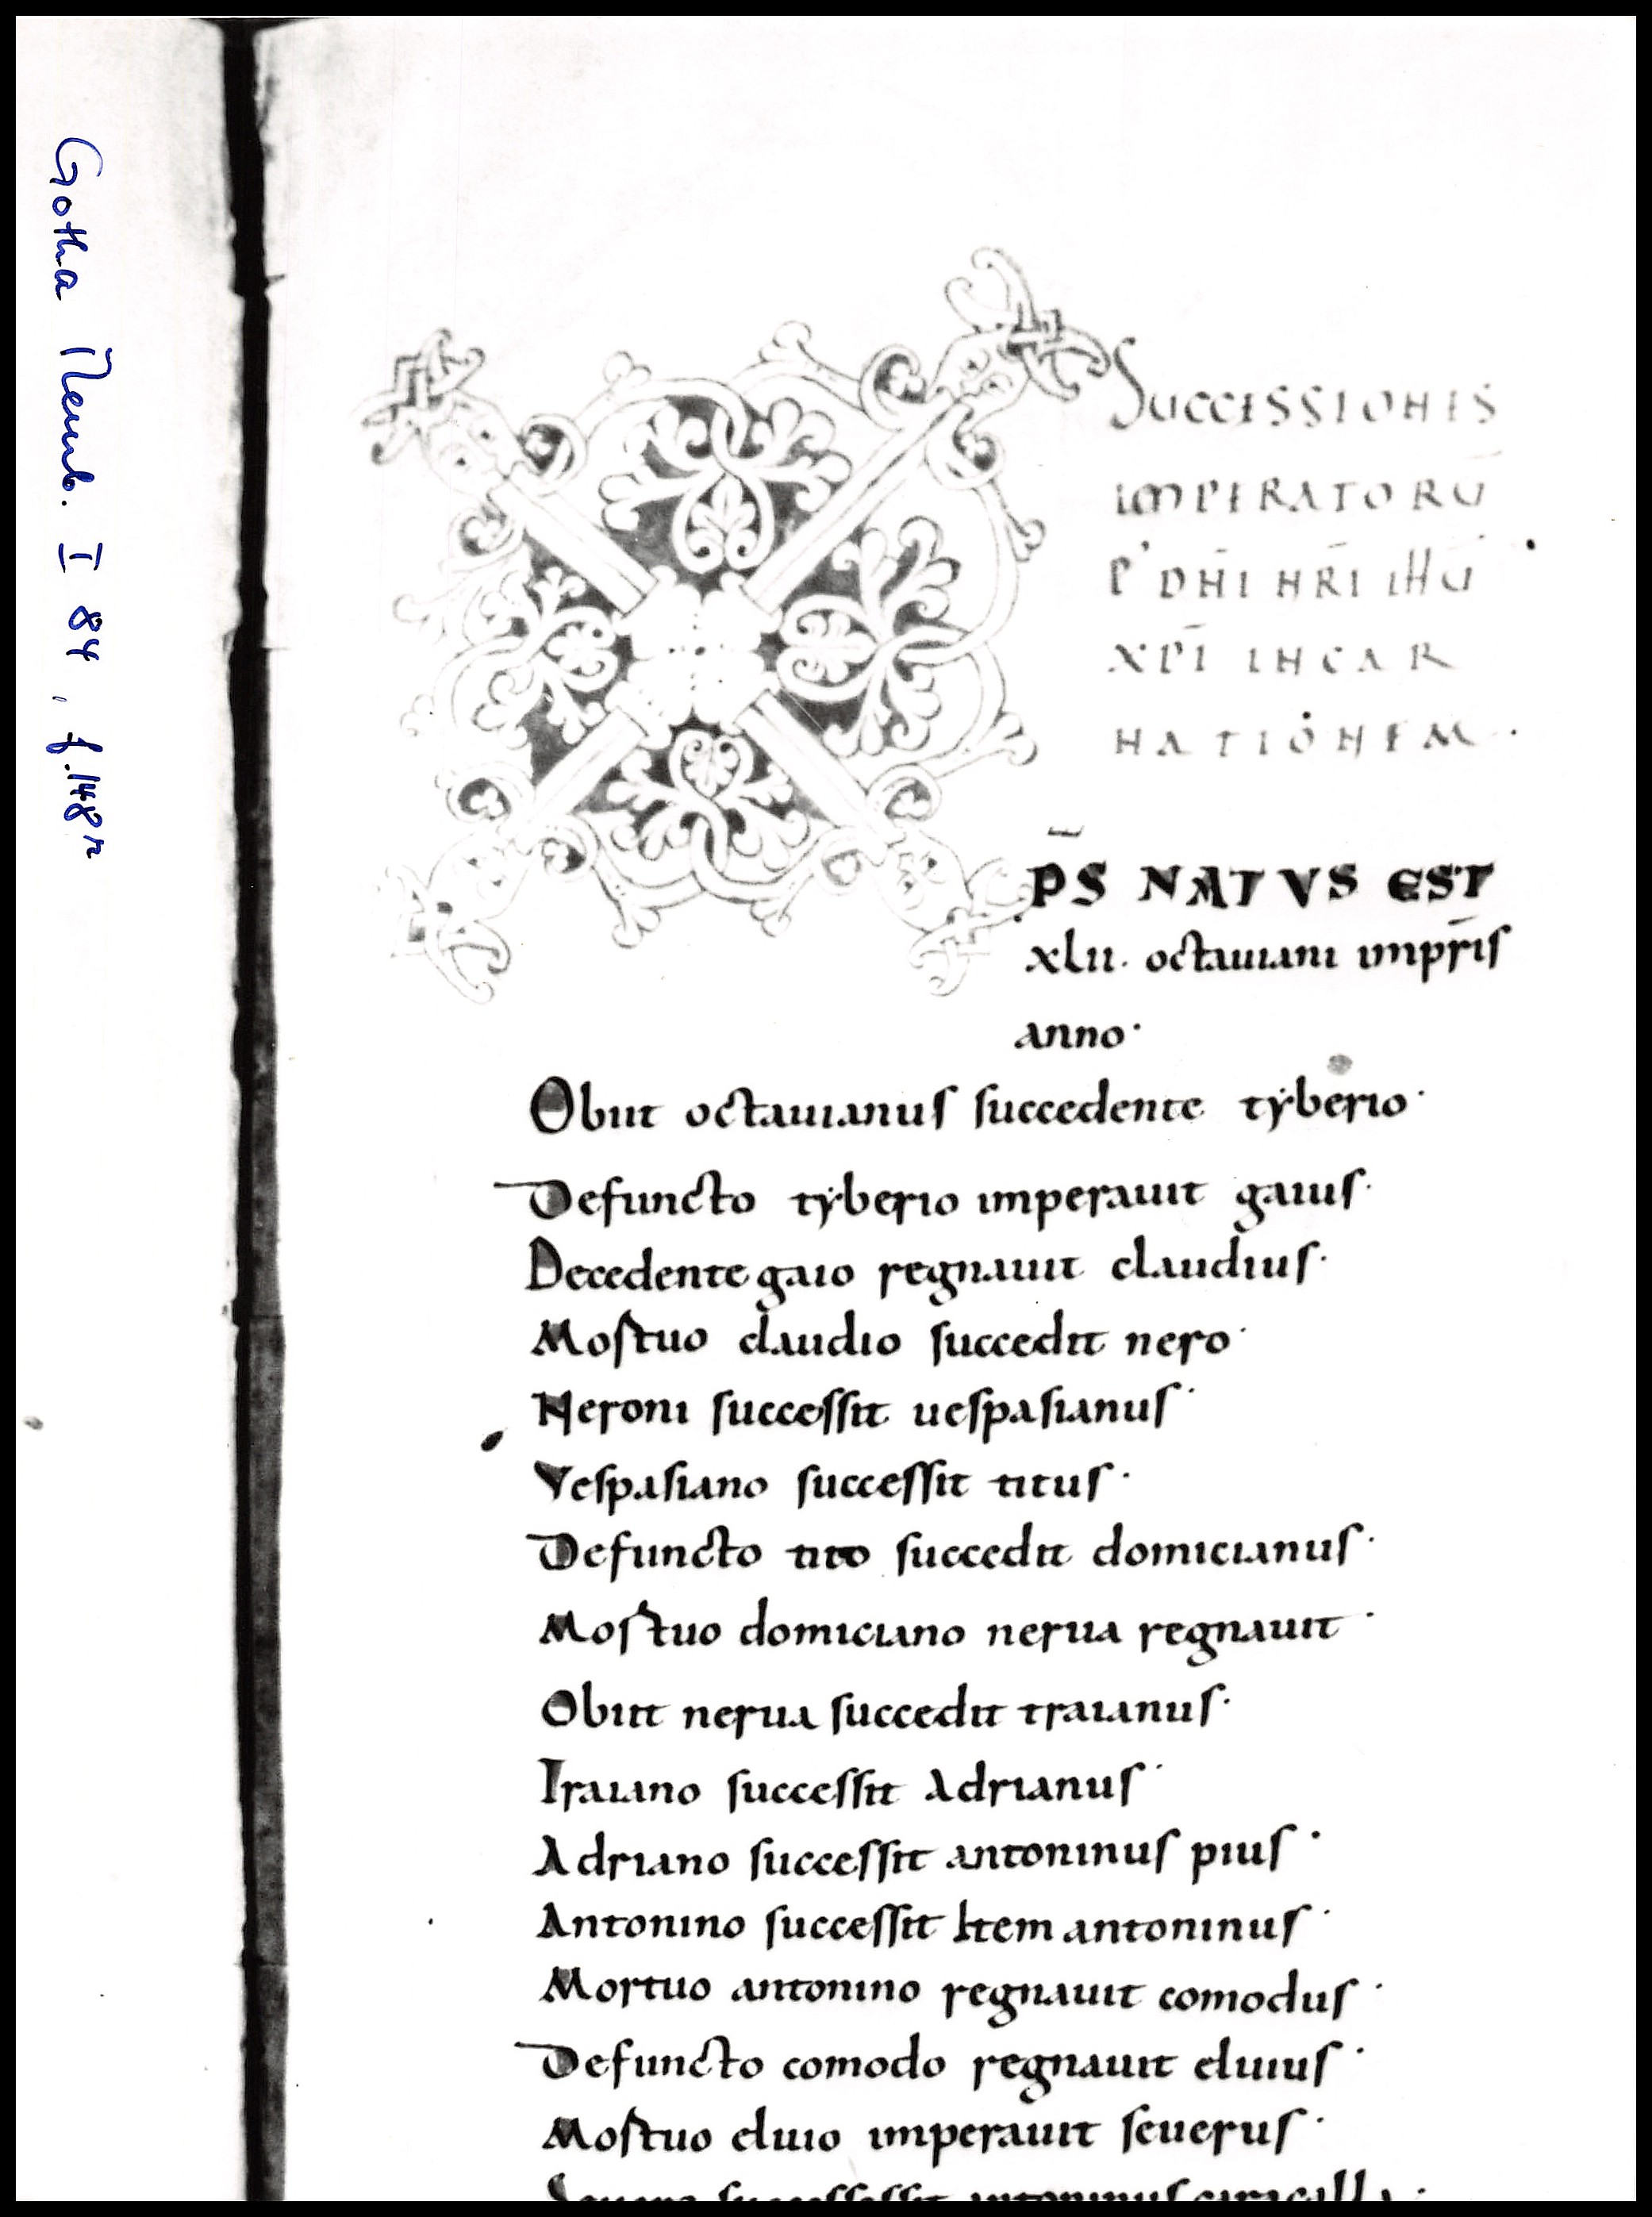 Gotha Memb. I 84, f. 148r
SUCCESSIONES
IMPERATORŪ
P' DN̄I NR̄I IHŪ
XP̄I INCAR
NATIONEM.
X P̄S NATVS EST
xlii. octauiani imp̄ris
anno.
Obiit octauianus succedente tẏberio.
Defuncto tẏberio imperauit gaius.
Decedente gaio regnauit claudius.
Mortuo claudio succedit nero.
Neroni successit uespasianus.
Vespasiano successit titus.
Defuncto tito succedit domicianus.
Mortuo domiciano nerua regnauit.
Obiit nerua succedit traianus.
Traiano successit Adrianus.
Adriano successit antoninus pius.
Antonino successit Item antoninus.
Mortuo antonino regnauit comodus.
Defuncto comodo regnauit eluius.
Mortuo eluio imperauit seuerus.
Seuero successit antoninus caracalla.